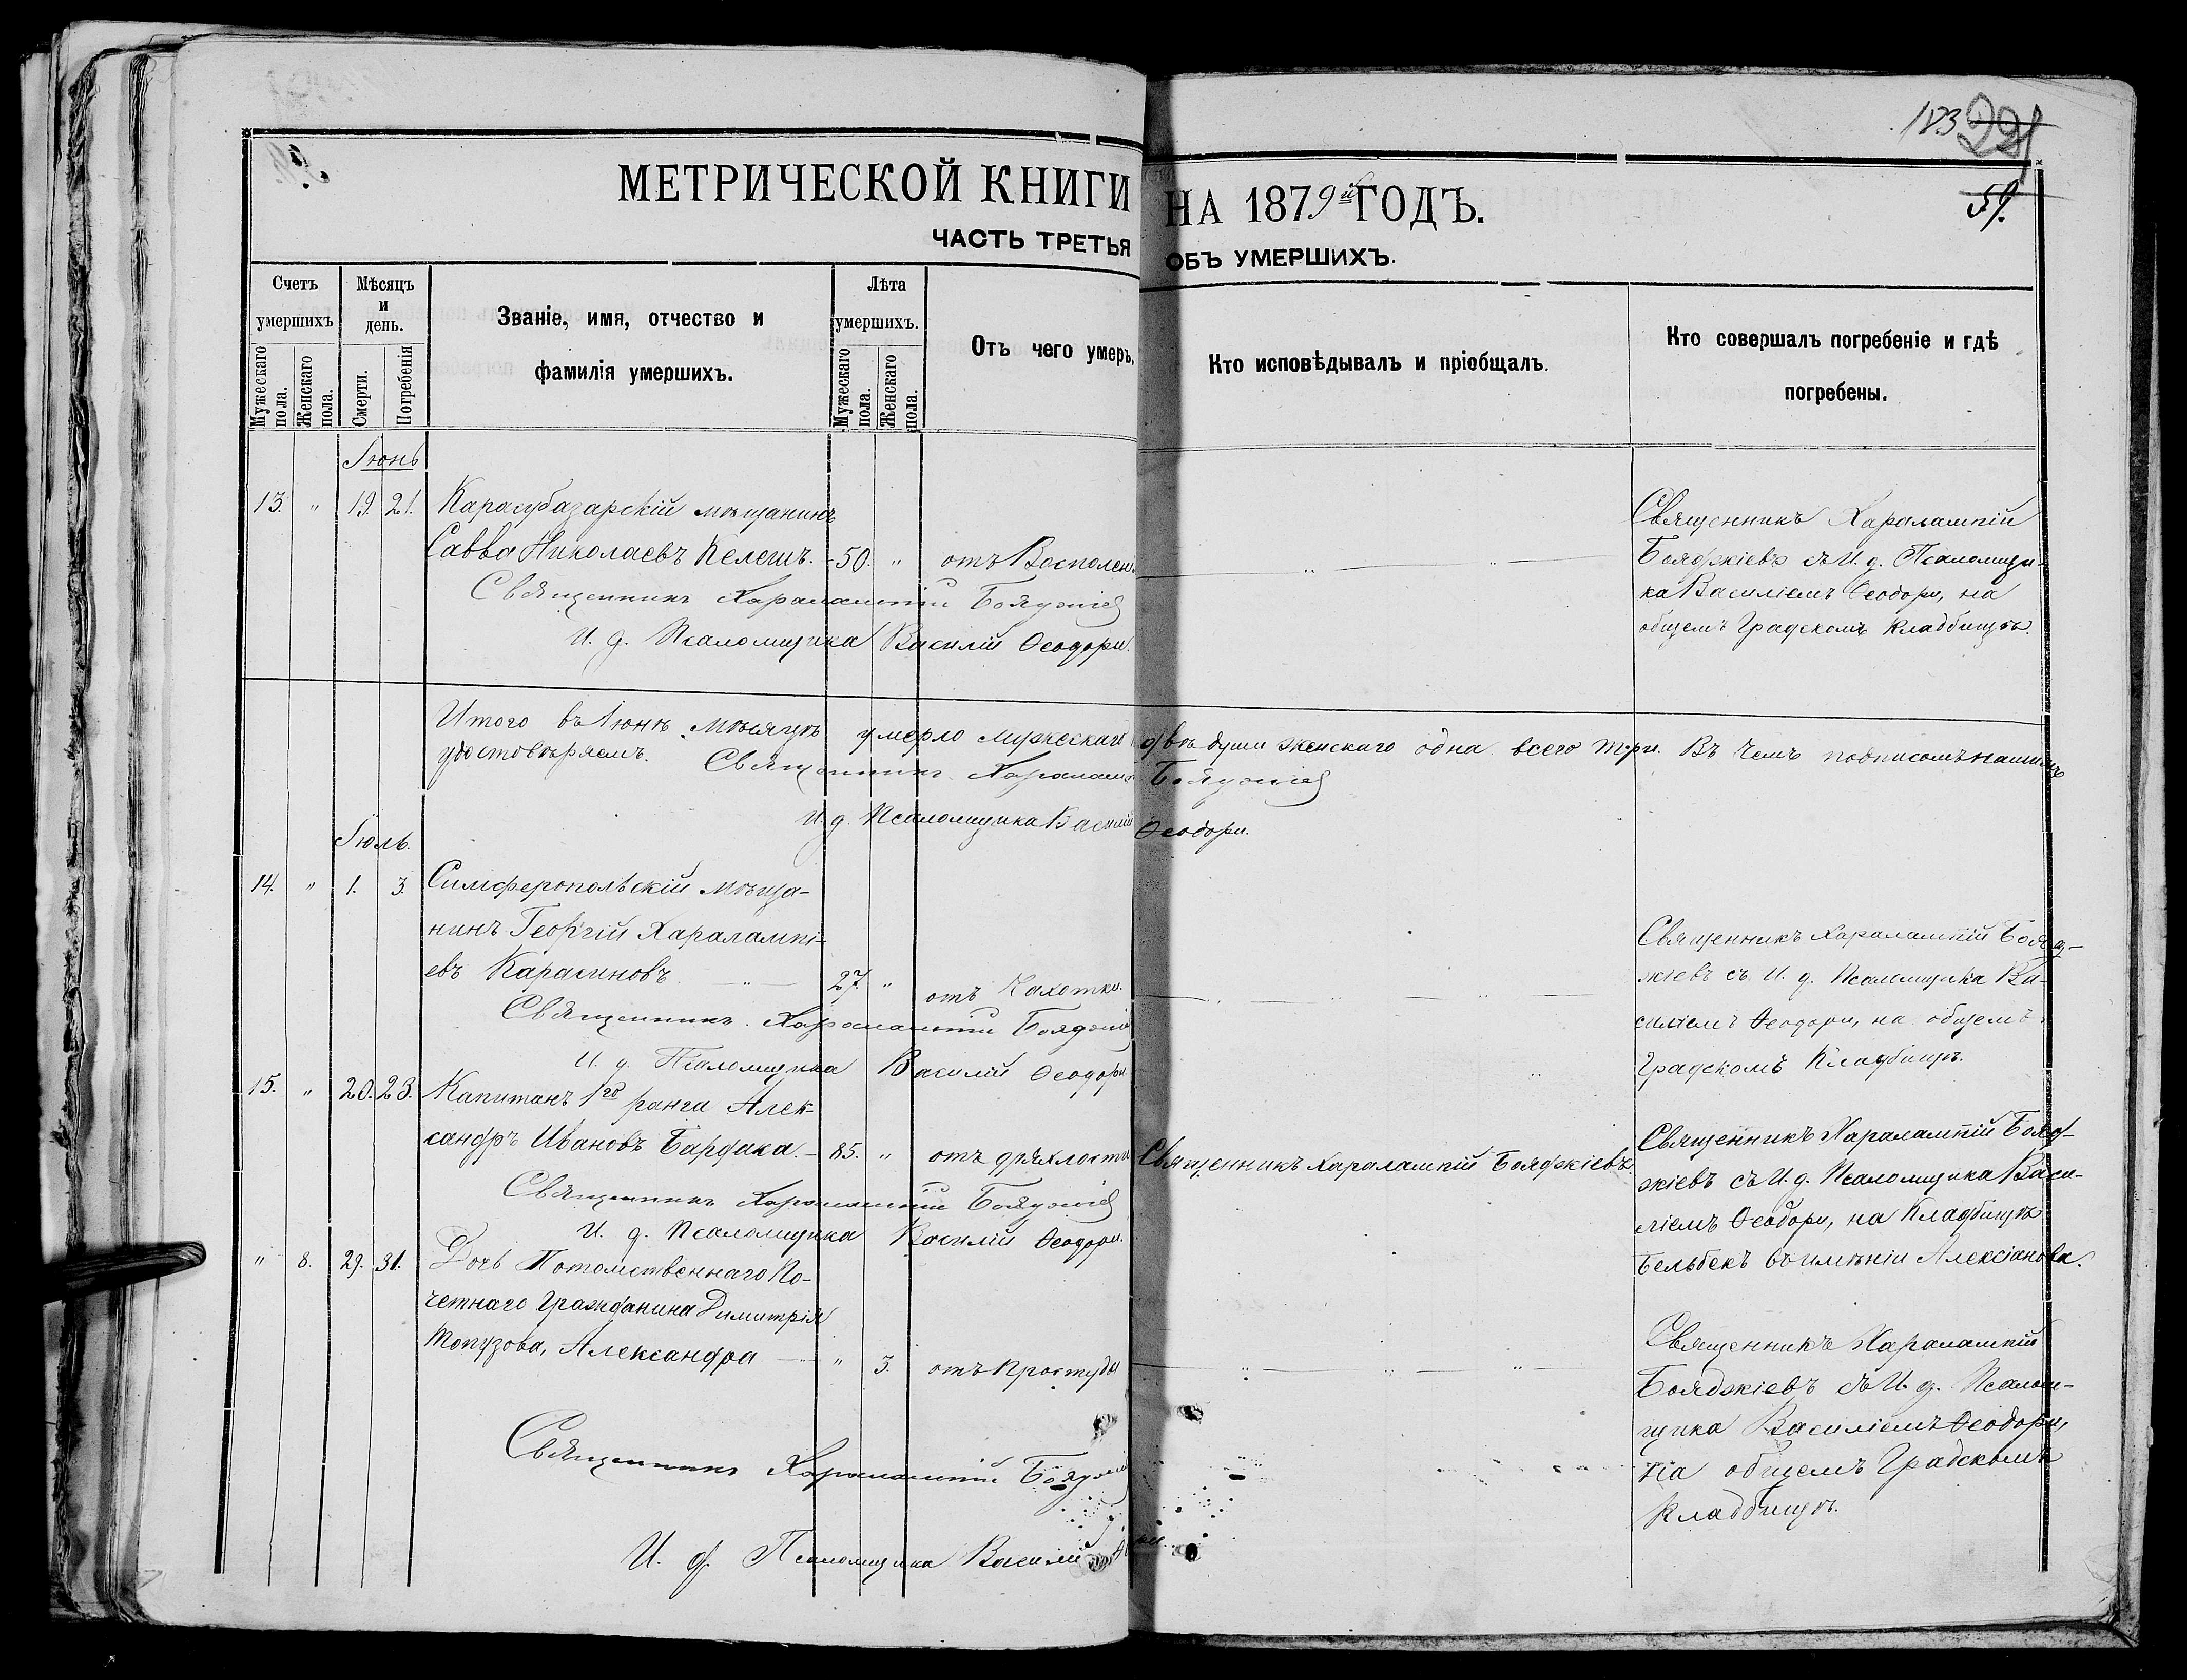 183 221
59.
МЕТРИЧЕСКОЙ КНИГИ НА 1879й ГОДЪ.
ЧАСТЬ ТРЕТЬЯ ОБЪ УМЕРШИХЪ.
Счетъ умершихъ
Мужескаго пола.
Женскаго пола.
Мѣсяцъ и день.
Смерти.
Погребенія
Званіе, имя, отчество и фамилія умершихъ.
Лѣта умершихъ.
Мужескаго пола.
Женскаго пола.
Отъ чего умеръ.
Кто исповѣдывалъ и пріобщалъ.
Кто совершалъ погребеніе и гдѣ погребены.
Іюнь
13. " 19. 21. Карасубазарскій мѣщанинъ
Савва Николаевъ Келешъ. - 50. " отъ Восполен.
Священникъ Харалампій Бояджіев
И. д. Псаломщика Василій Ѳеодори.
Священникъ Харалампій
Бояджіевъ съ И. д. Псаломщи-
ка Василіемъ Ѳеодори, на
общемъ Градскомъ Кладбищѣ.
Итого въ Іюнѣ мѣсяцѣ умерло мужескаго двѣ души женскаго одна всего три. Въ чемъ подписомъ нашимъ
удостовѣряемъ. Священникъ Харалампій Бояджіев
И. д. Псаломщика Василій Ѳеодори.
Іюль.
14. " 1. 3. Симферопольскій мѣща-
нинъ Георгій Харалампі-
евъ Карасиновъ 27. " отъ Чахотки.
Священникъ Харалампій Бояджіев
И. д. Псаломщика Василій Ѳеодори.
Священникъ Харалампій Бояд-
жіевъ съ И. д. Псаломщика Ва-
силіемъ Ѳеодори, на общемъ
Градскомъ Кладбищѣ.
15. " 20. 23. Капитанъ 1го ранга Алек-
сандръ Ивановъ Бардака. - 85. " отъ дряхлости Священникъ Харалампій Бояджіевъ.
Священникъ Харалампій Бояджіев
И. д. Псаломщика Василій Ѳеодори.
Священникъ Харалампій Бояд-
жіевъ съ И. д. Псаломщика Васи-
ліемъ Ѳеодори, на Кладбищѣ
Бельбекъ въ имѣніи Алексіанова.
" 8. 29. 31. Дочь Потомственнаго По-
четнаго Гражданина Димитрія
Топузова, Александра " 3. отъ Простуды
Священникъ Харалампій
Бояджіевъ съ И. д. Псалом-
щика Василіемъ Ѳеодори,
на общемъ Градскомъ
Кладбищѣ.
Священникъ Харалампій Бояджіев
И. д. Псаломщика Василій